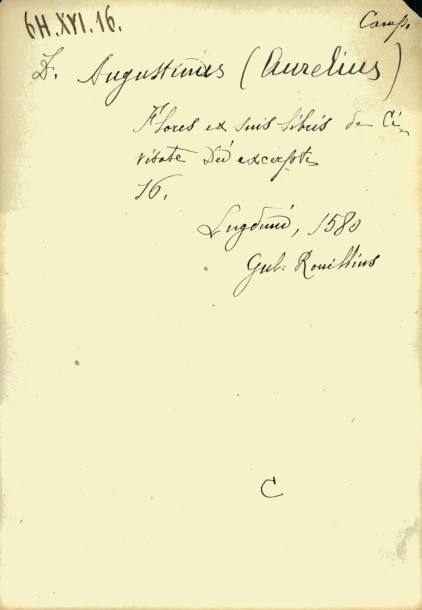 6H.XVI.16.
Camp.
D. Augustinus (Aurelius)
Flores ex suis libris de Ci-
vitate Dei excerpti
16.
Lugduni, 1580
Gul. Rouillius
C